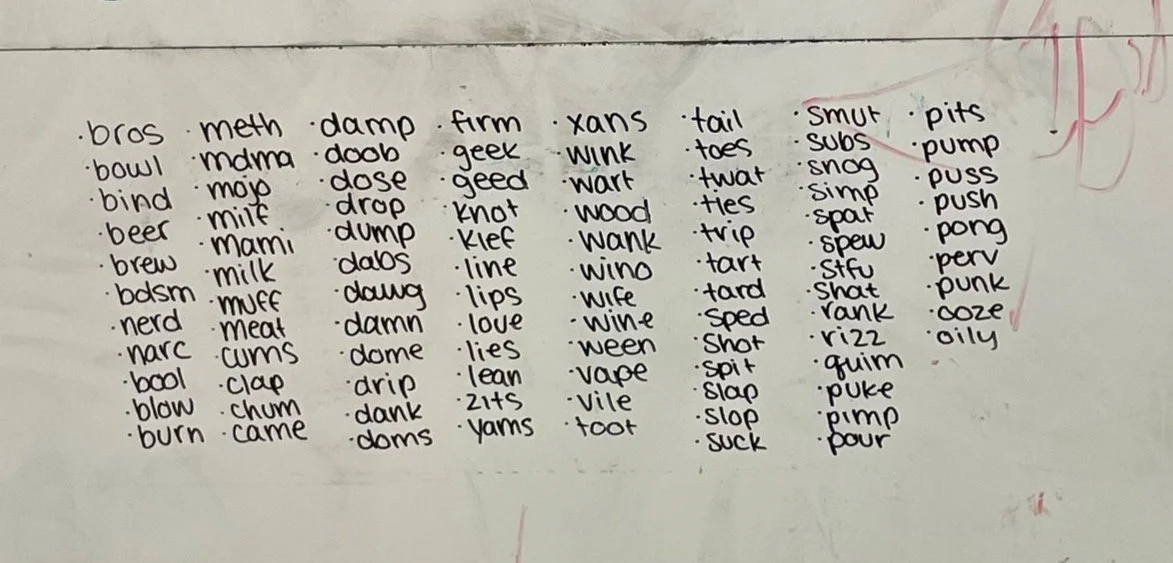 ·bros
·bowl
·bind
·beer
·brew
·bdsm
·nerd
·narc
·bool
·blow
·burn
·meth
·mdma
·mojo
·milf
·mami
·milk
·muff
·meat
·cums
·clap
·chum
·came
·damp
·doob
·dose
·drop
·dump
·dabs
·dawg
·damn
·dome
·drip
·dank
·doms
·firm
·geek
·geed
·knot
·klef
·line
·lips
·love
·lies
·lean
·zits
·yams
·xans
·wink
·wart
·wood
·wank
·wino
·wife
·wine
·ween
·vape
·vile
·toot
·tail
·toes
·twat
·ties
·trip
·tart
·tard
·sped
·shot
·spit
·slap
·slop
·suck
·smut
·subs
·snog
·simp
·spat
·spew
·stfu
·shat
·rank
·rizz
·quim
·puke
·pimp
·pour
·pits
·pump
·puss
·push
·pong
·perv
·punk
·ooze
·oily